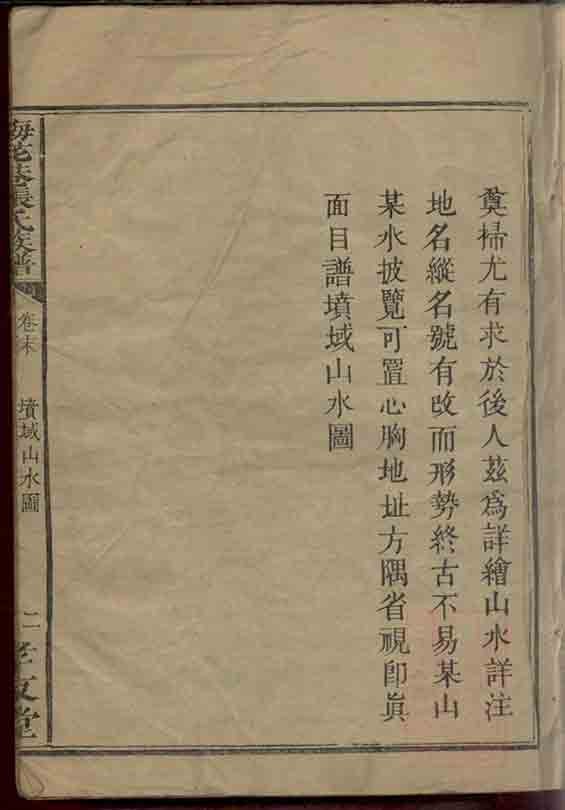 奠掃尤有求於後人茲爲詳繪山水詳注
地名縱名號有改而形勢終古不易某山
某水披覽可置心胸地址方隅省視卽眞
面目譜墳域山水圖
張氏族譜
卷末
墳域山水圖
二
文堂